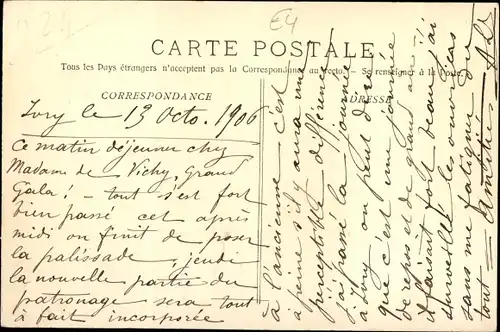 E4
CARTE POSTALE
Tous les Pays étrangers n'acceptent pas la Correspondance au recto. - Se renseigner à la Poste
CORRESPONDANCE
ADRESSE
Ivry le 13 Octo. 1906
Ce matin déjeuner chez
Madame de Vichy, Grand
Gala! - tout s'est fort
bien passé cet après
midi on finit de poser
la palissade, jeudi
la nouvelle partie du
patronage sera tout
à fait incorporée
à l'ancienne - c'est
à peine s'il y aura une
perceptible différence
j'ai passé la journée
à Ivry on peut dire
que c'est une journée
de repos et de grand air!
il faisait fort beau j'ai
surveillé les ouvriers
sans me fatiguer du
tout - Amitiés